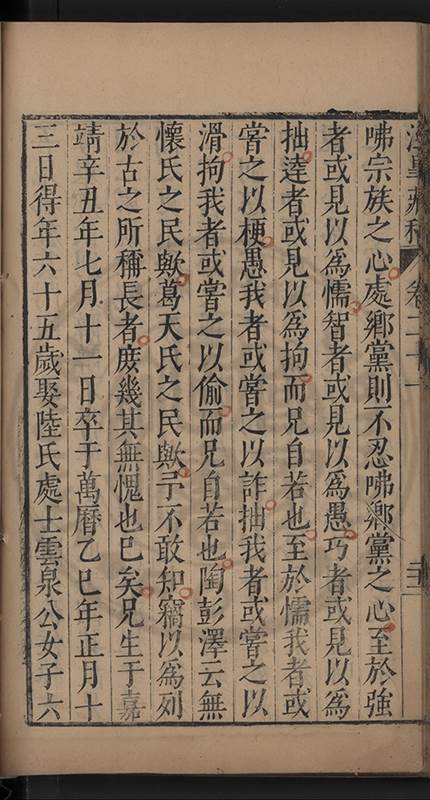 卷二十一
咈宗族之心處鄉黨則不忍咈鄉黨之心至於強
者或見以為懦智者或見以為愚巧者或見以為
拙達者或見以為拘而兄自若也至於懦我者或
嘗之以梗愚我者或嘗之以詐拙我者或嘗之以
滑拘我者或嘗之以偷而兄自若也陶彭澤云無
懷氏之民歟葛天氏之民歟予不敢知竊以為列
於古之所稱長者庶幾其無愧也巳矣兄生于嘉
靖辛丑年七月十一日卒于萬曆乙巳年正月十
三日得年六十五歲娶陸氏處士雲泉公女子六